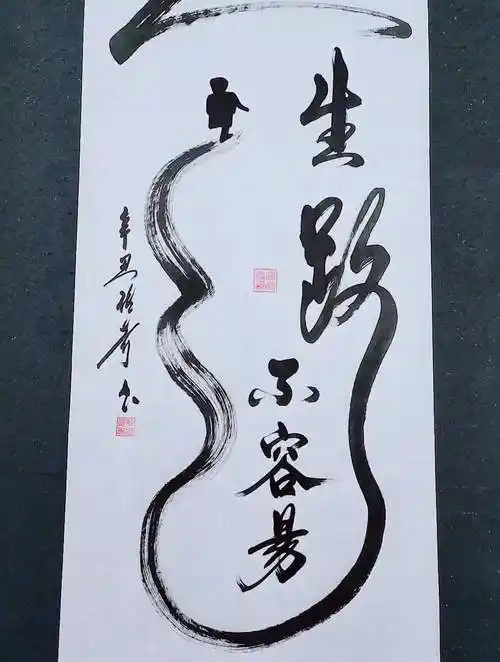 生路
不容易
辛丑 书